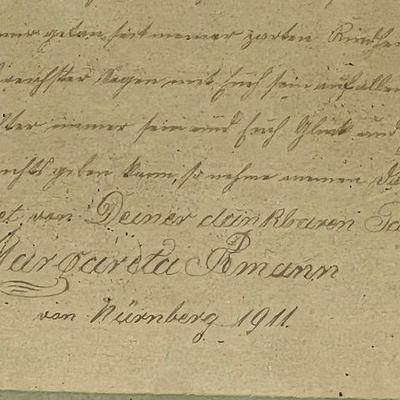 mir getan, seit meiner zarten Kindhei
reichster Segen, mit Euch sein auf allen
ter immer sein und Euch Glück und
nichts geben kann, so nehme meinen Da
et von Deiner dankbaren
Margareta
von Nürnberg 1911.